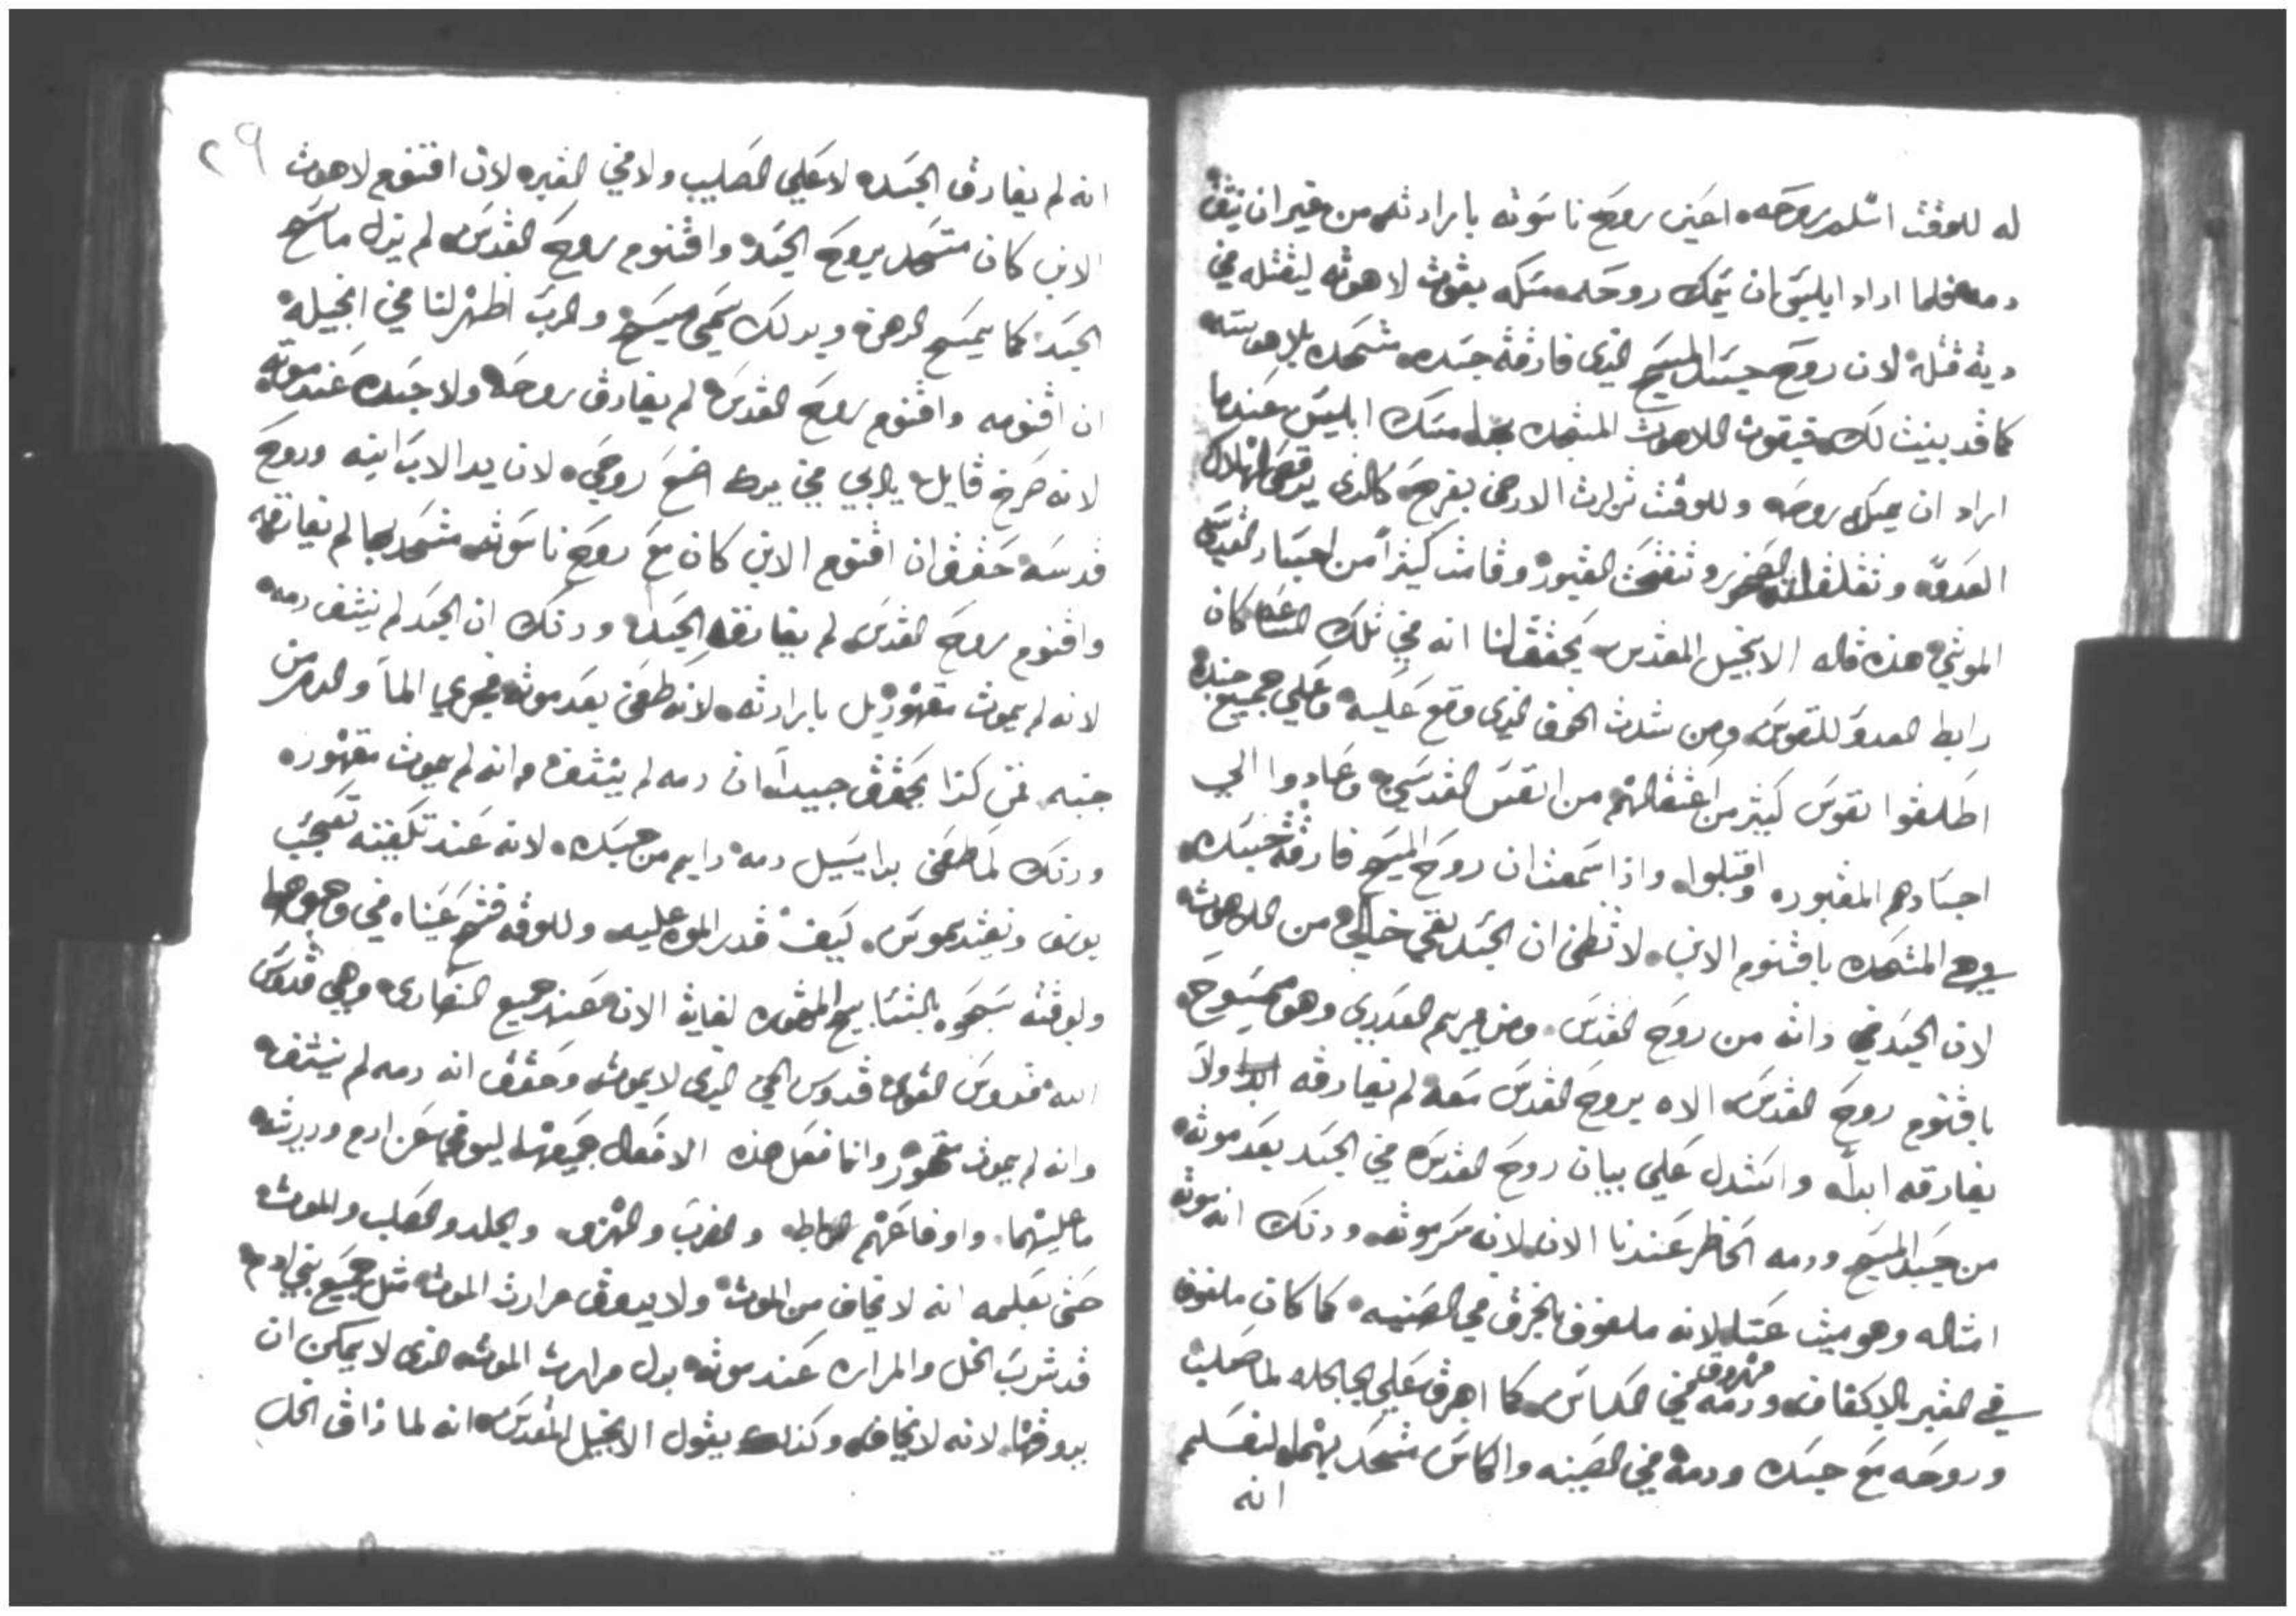 له للوقت اسلم روحه اعني روح ناسوته بارادته من غير ان ينثف
دمه فلما اراد ابليس ان يمسك روحه مسكه بقوت لاهوته ليقتله في
ديث قتله لان روح جسد المسيح الذي فارقة جسده متحده بلاهوته
كما قد بينت لك فبقوت اللاهوت المتحده بها مسك ابليس عندما
اراد ان يمسك روحه وللوقت تزلزلت الارض بفرحه كالذي يرقص لهلاك
العدو وتفلقت الصخر وتفتحت القبور وقامت كثيراً من اجساد القديسي
الموتي هذه قاله الانجيل المقدس يحقق لنا انه في تلك الساعه كان
رابط العدو للنفوس ومن شدت الخوف الذي وقع عليه وعلي جميع جنده
اطلقوا نفوس كثير من اعتقالهم من انفس القدسي وعادوا الي
اجسادهم المقبوره واقبلوا واذا سمعت ان روح المسيح فارقة جسده
وهي المتحده باقنوم الابن لا تظن ان الجسد بقي خالي من اللاهوت
لان الجسد في ذاته من روح القدس ومن مريم العدري وهو ممسوح
باقنوم روح القدس الاه بروح القدس معه لم تفارقه ابدا ولا
يفارقه ابداً واستدل علي بيان روح القدس في الجسد بعد موته
من جسد المسيح ودمه الحاظر عندنا الان لان سر موته وذلك انه موته
امثاله وهو ميت عنا لانه ملفوف بالخرق في الصنيه كما كان ملفوف
في القبر بالاكفاف ودمه مهروق في الكاس كما اهرق علي الجاجله لما صلب
وروحه مع جسده ودمه في الصينه والكاس متحد بهما لنعلم
انه
٢٩
انه لم يفارق الجسده لا علي الصليب ولا في القبره لان اقنوم لاهوت
الابن كان متحد بروح الجسد واقنوم روح القدس لم يزل ماسح
الجسد كما يمسح الدهن وبدلك سمي مسيح والرب اظهر لنا في انجيله
ان اقنومه واقنوم روح القدس لم يفارق روحه ولا جسده عند موته
لانه صرخ قايل يا ابي في يدك اضع روحي لان يد الاب ابنه وروح
قدسه حقق ان اقنوم الابن كان مع روح ناسوته متحد بها لم يفارقها
واقنوم روح القدس لم يفارقه الجسد وذلك ان الجسد لم ينثف دمه
لانه لم يموت مقهور بل بارادته لانه طعن بعد موته فجري الما والدم من
جنبه فمن كذا يحقق جيداً ان دمه لم ينثف وانه لم يموت مقهور
وذلك لما طعن بدا يسيل دمه دايم من جسده لانه عند تكفينه تعجب
يوسف ونيقديموس كيف قدر الموت عليه وللوقه فتح عيناه في وجوهما
ولوقته سبحوه بالتسابيح المتقوه لغايت الان عند جميع النصاري وهي قدوس
الله قدوس القوي قدوس الحي الذي لا يموت وحقق انه دمه لم ينثف
وانه لم يموت مقهور وانما فعل هذه الافعال جميعها ليوفي عن ادم ودريته
ما عليهما واوفا عنهم الرباط والضرب والهزو والجلد والصلب والموت
حتي بعلمه انه لا يخاف من الموت ولا يدوق مرارت الموت مثل جميع بني ادم
قد شرب الخل والمراره عند موته بدل مرارت الموت الذي لا يمكن ان
يدوقها لانه لا يخاف وكذلك يقول الانجيل المقدس انه لما ذاق الخل